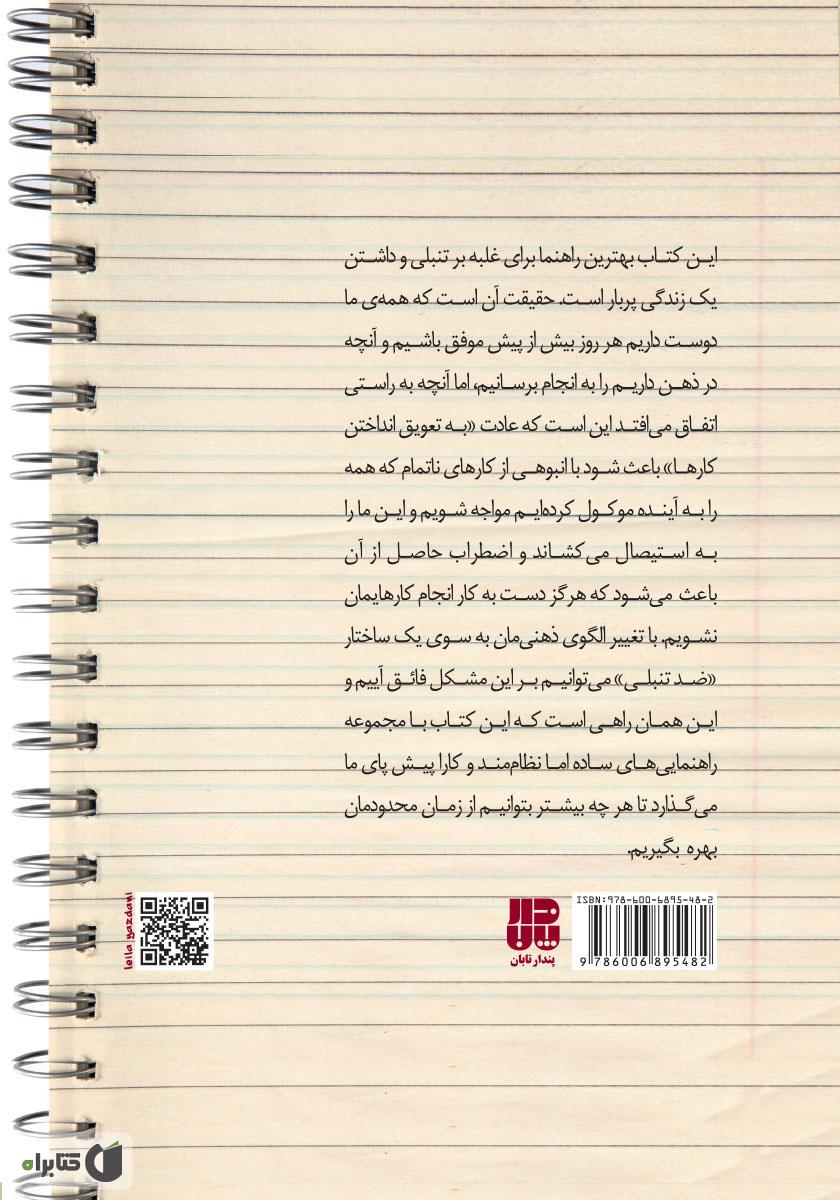 این کتاب بهترین راهنما برای غلبه بر تنبلی و داشتن
یک زندگی پربار است. حقیقت آن است که همه‌ی ما
دوست داریم هر روز بیش از پیش موفق باشیم و آنچه
در ذهن داریم را به انجام برسانیم، اما آنچه به راستی
اتفاق می‌افتد این است که عادت «به تعویق انداختن
کارها» باعث شود با انبوهی از کارهای ناتمام که همه
را به آینده موکول کرده‌ایم مواجه شویم و این ما را
به استیصال می‌کشاند و اضطراب حاصل از آن
باعث می‌شود که هرگز دست به کار انجام کارهایمان
نشویم. با تغییر الگوی ذهنی‌مان به سوی یک ساختار
«ضد تنبلی» می‌توانیم بر این مشکل فائق آییم و
این همان راهی است که این کتاب با مجموعه
راهنمایی‌های ساده اما نظام‌مند و کارا پیش پای ما
می‌گذارد تا هر چه بیشتر بتوانیم از زمان محدودمان
بهره بگیریم.
ISBN: 978-600-6895-48-2
9 786006 895482
پندار
تابان
پندار تابان
leila yazdani
کتابراه